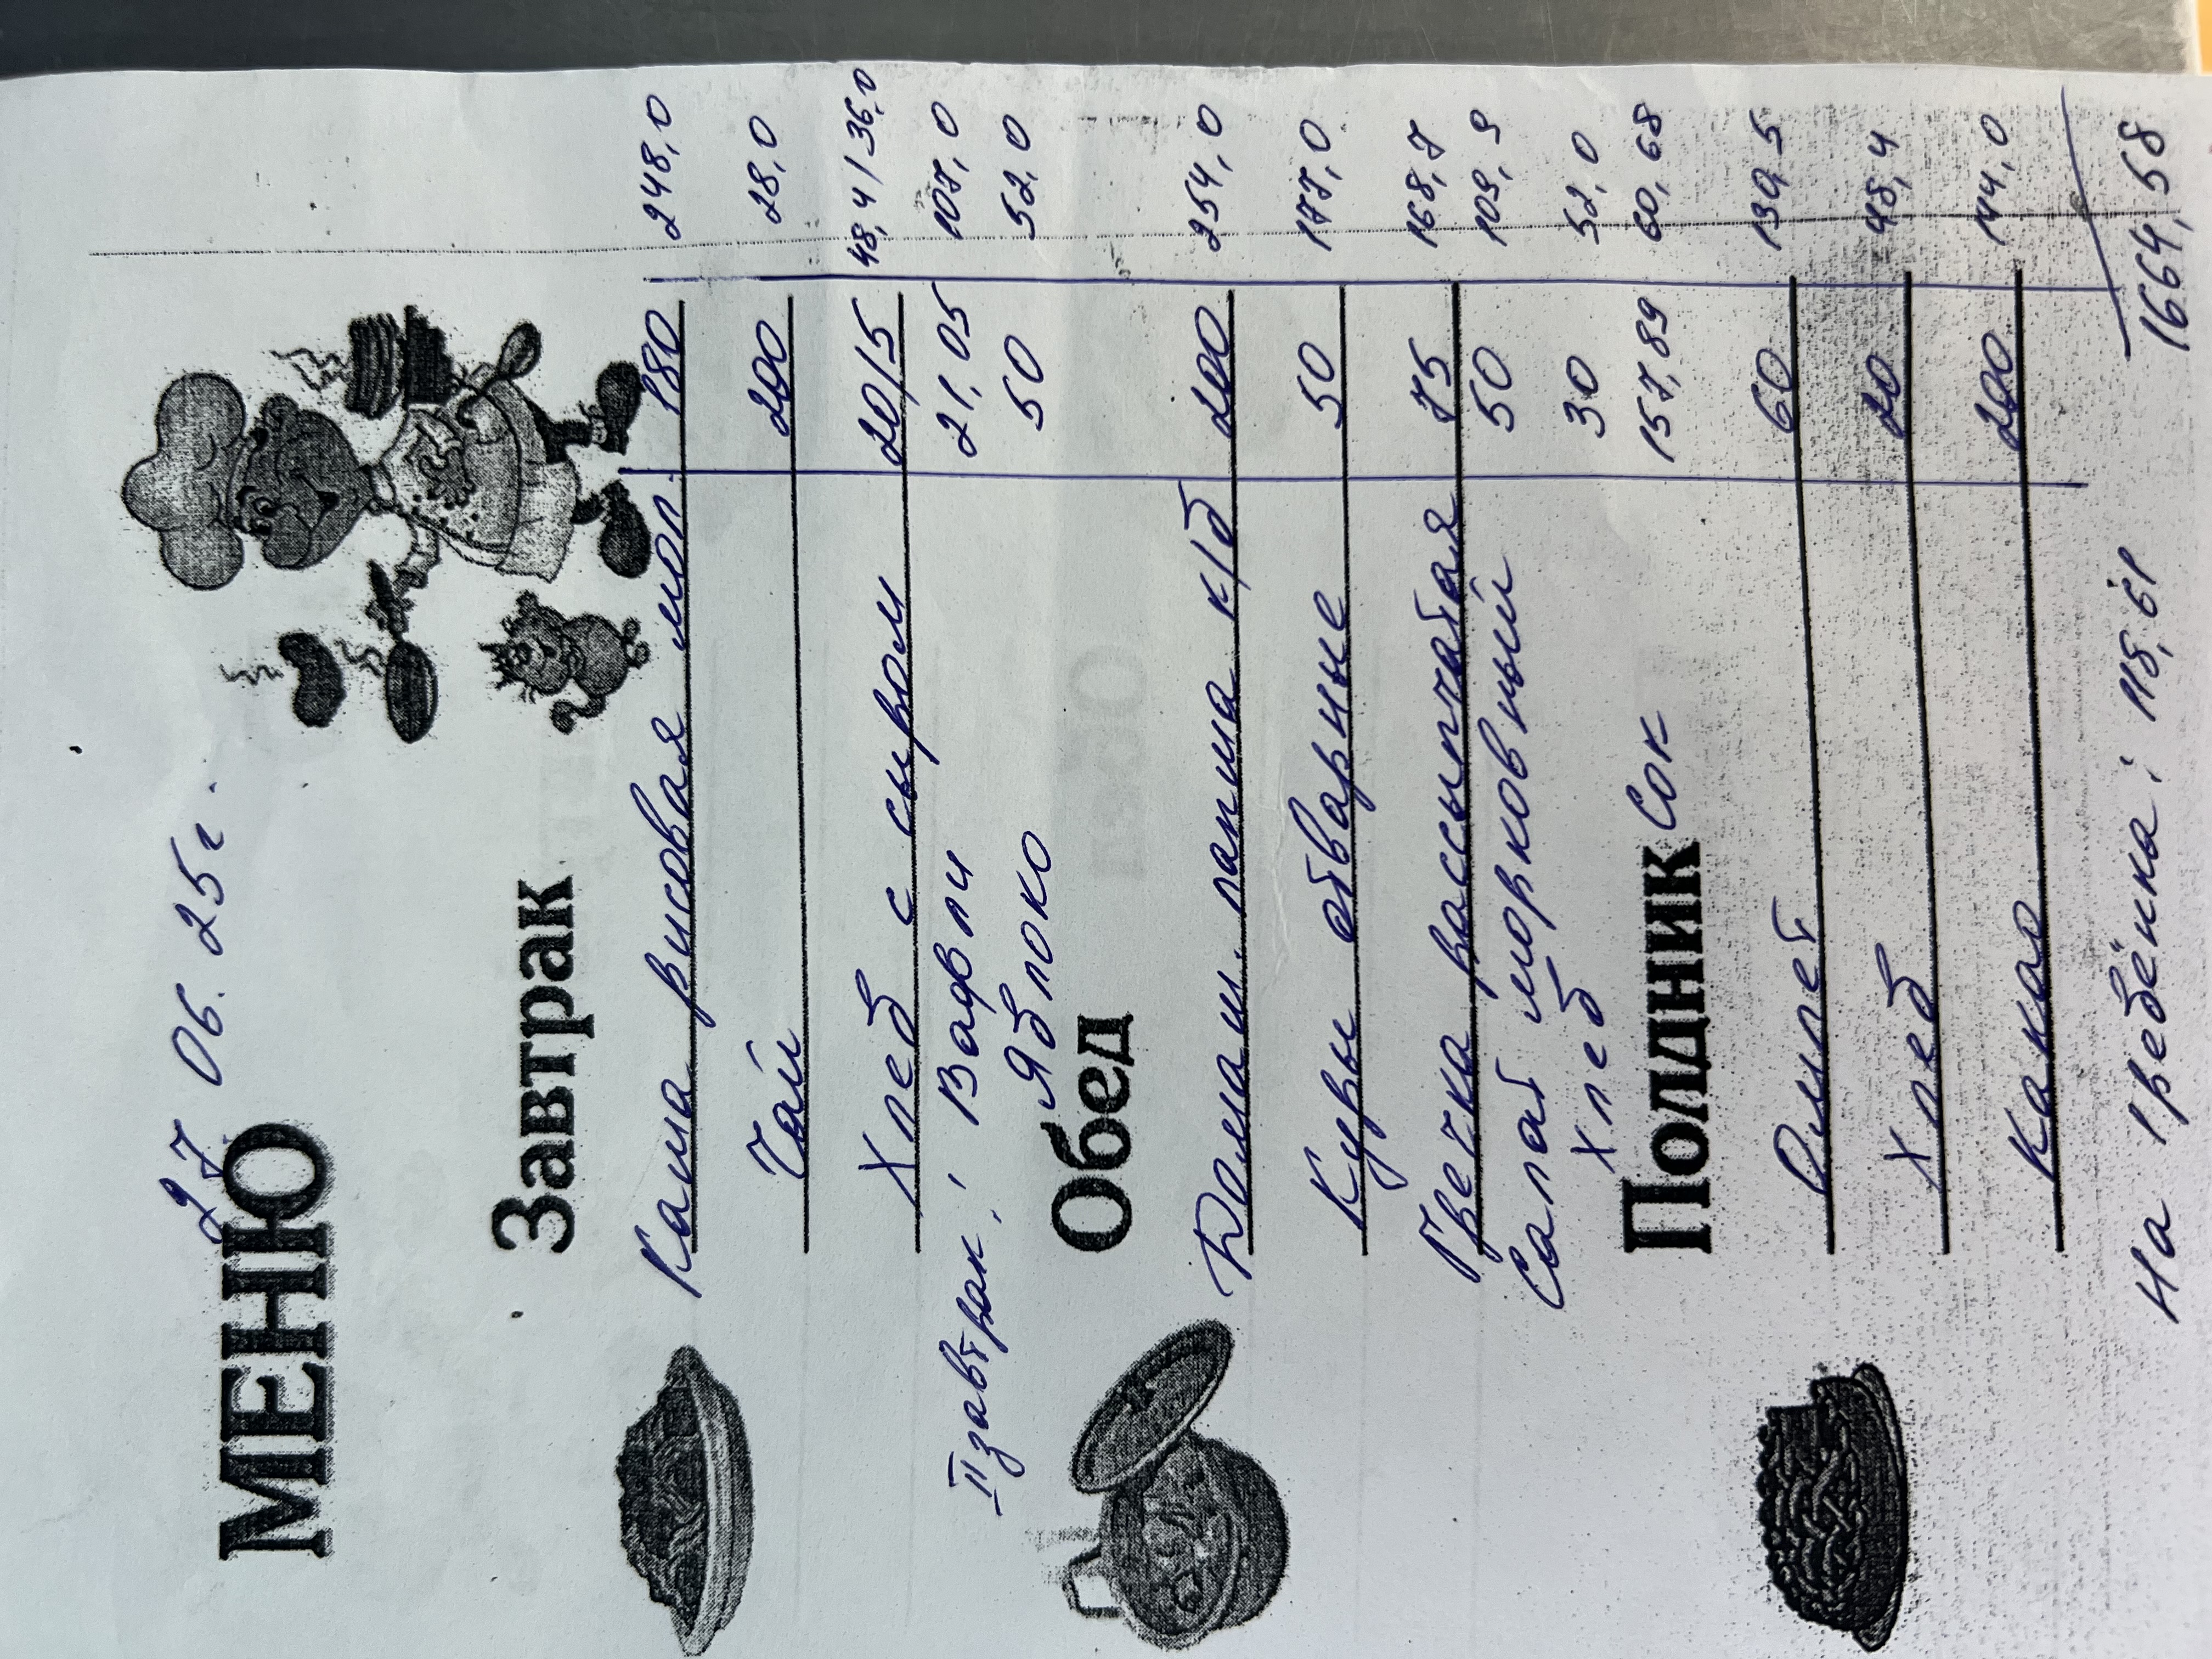 27 06. 25г.
МЕНЮ
Завтрак
Каша рисовая мол. 180 248,0
Чай 200 28,0
Хлеб с сыром 20/5 48,4/36,0
II завтрак: Вафли 21,05 107,0
Яблоко 50 52,0
Обед
Домаш. лапша к/б 200 254,0
Куры отварные 50 177,0
Гречка рассыпчатая 75 168,7
Салат морковный 50 109,9
Хлеб 30 52,0
Сок 157,89 60,68
Полдник
Омлет 60 139,5
Хлеб 20 48,4
Какао 200 144,0
На 1 ребёнка: 118,61 1664,58